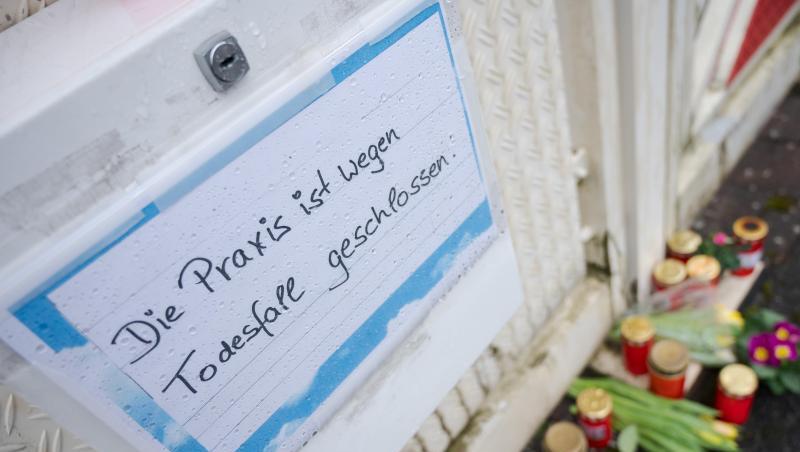 Die Praxis ist wegen
Todesfall geschlossen.